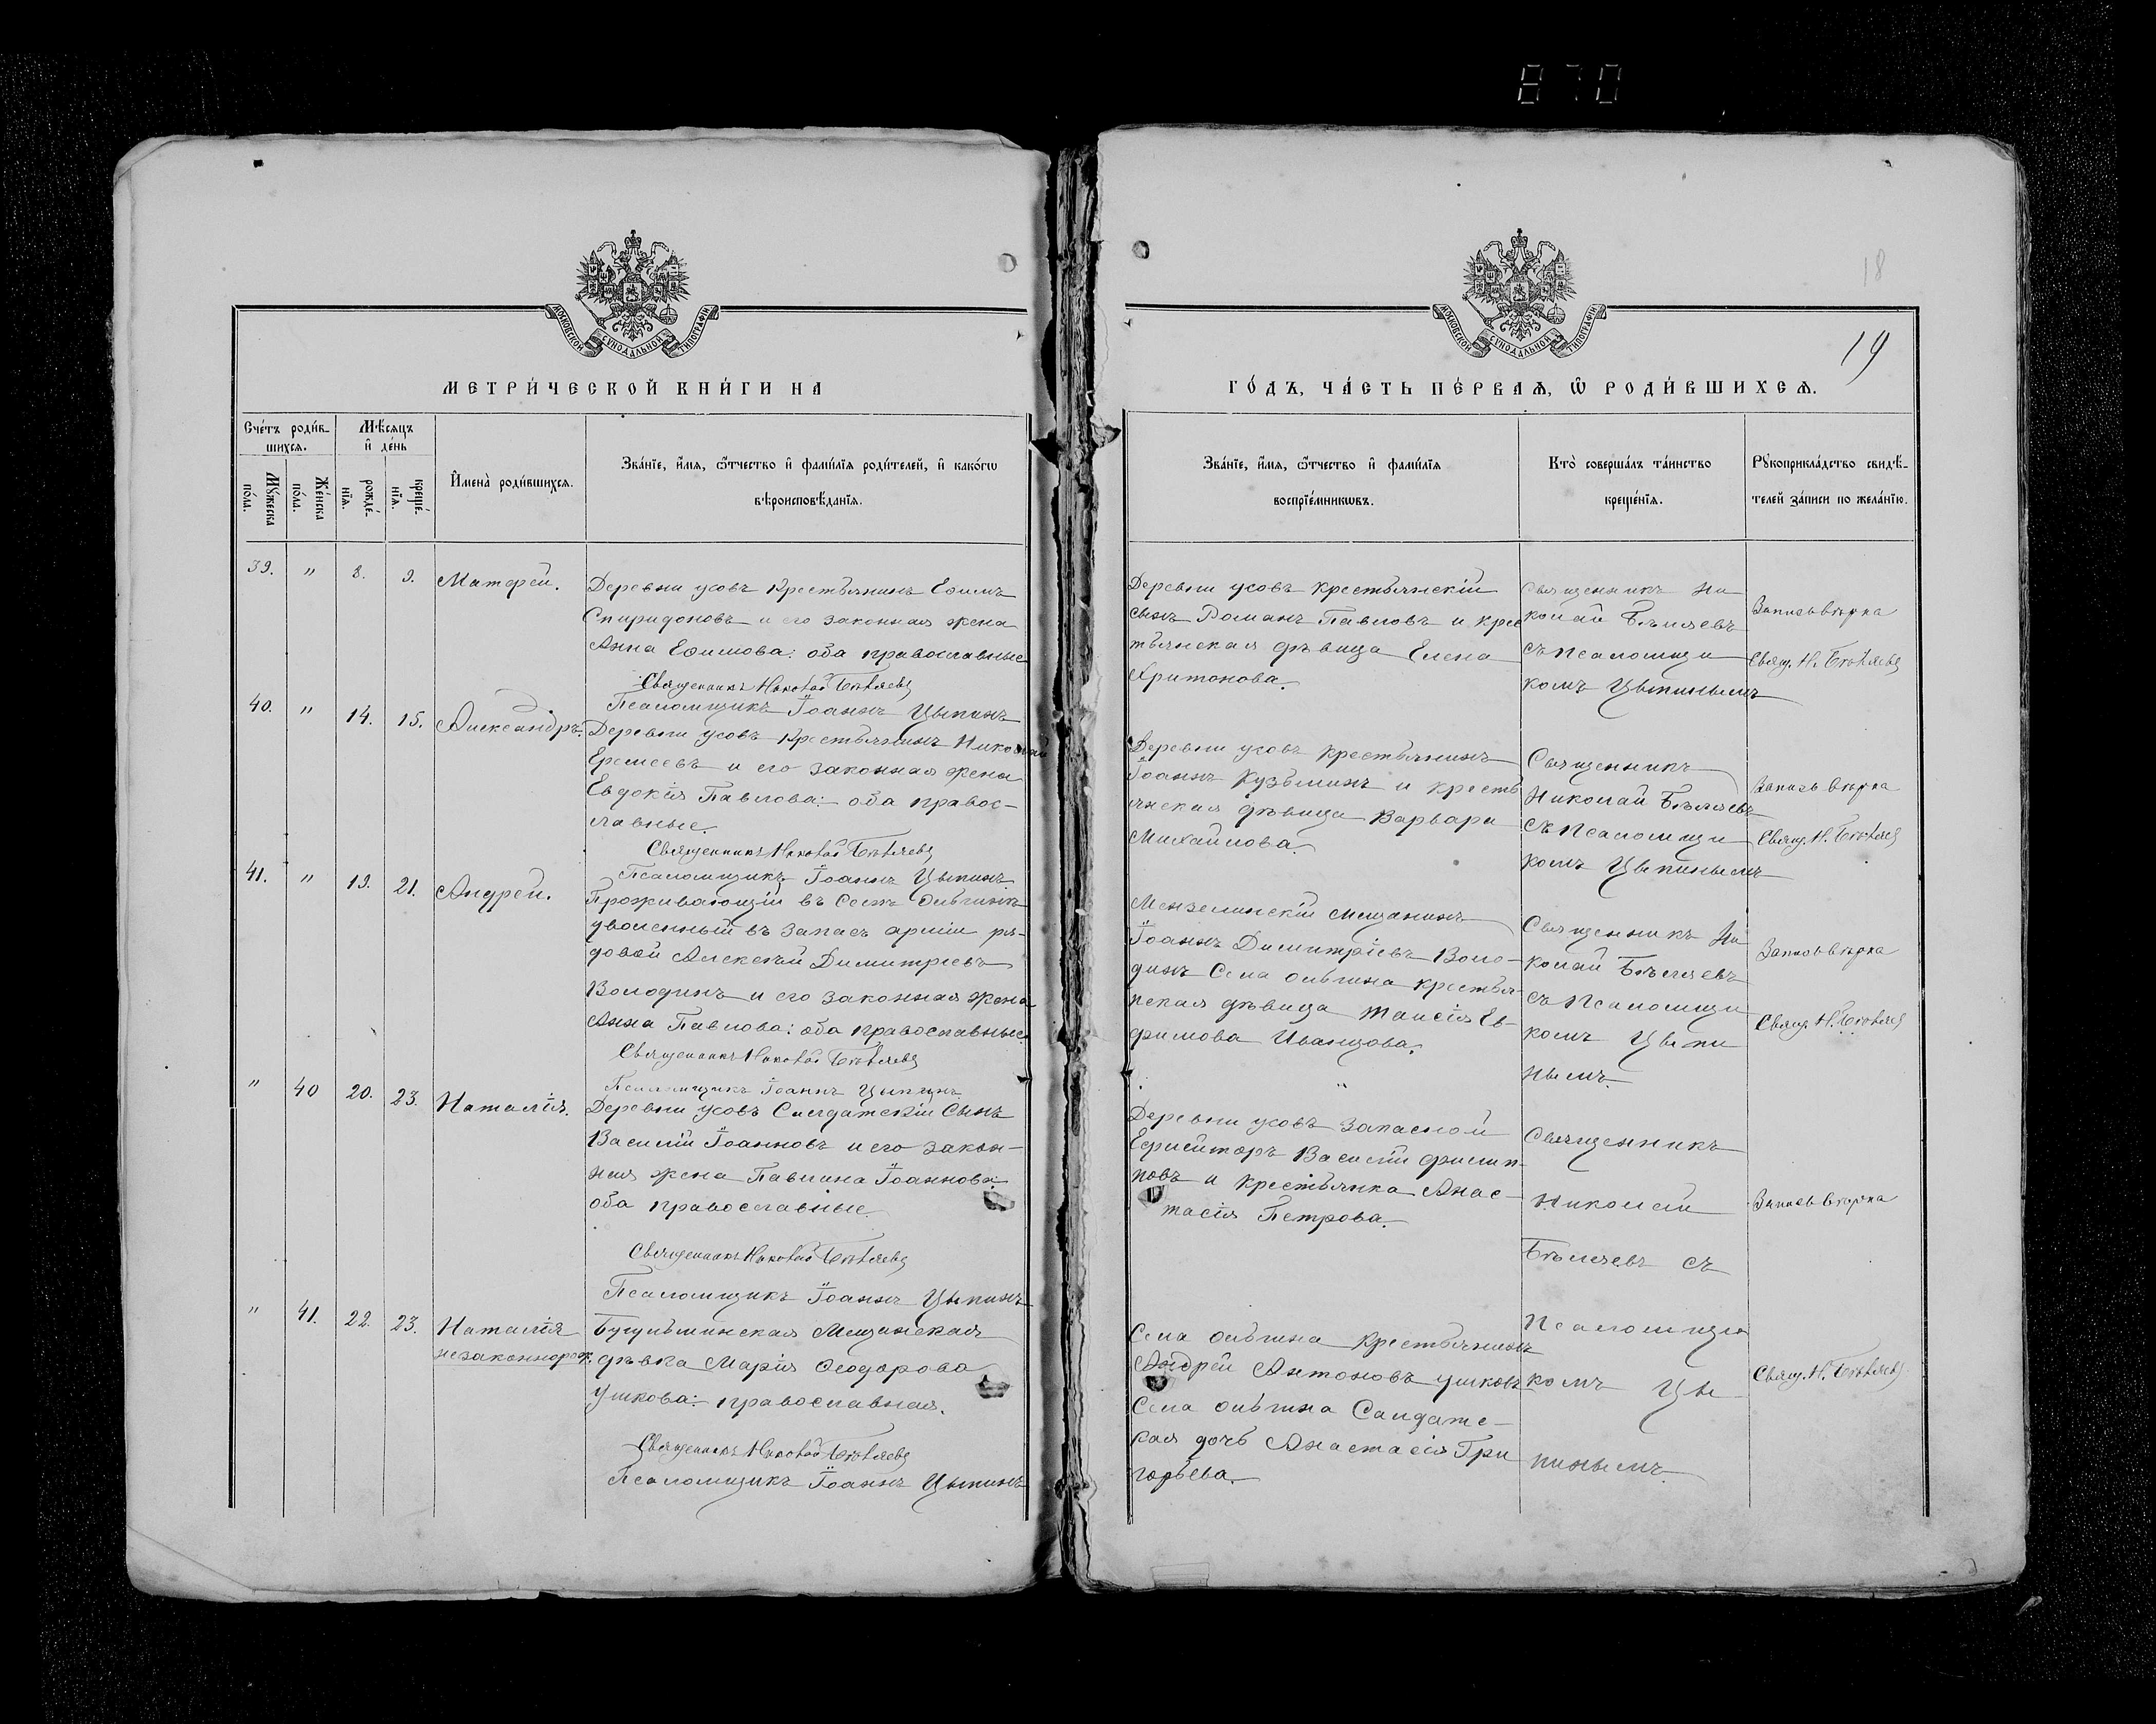 870
18
19
МОСКОВСКОЙ СУНОДАЛЬНОЙ ТИПОГРАФІИ
МЕТРИ́ЧЕСКОЙ КНИ́ГИ НА
Сче́тъ роди́в-
шихсѧ.
Мѣ́сѧцъ
и҆ де́нь
И҆мена̀ роди́вшихсѧ.
Зва́нїе, и҆́мѧ, ѻ҆́тчество и҆ фами́лїѧ роди́телей, и҆ како́гѡ
вѣроисповѣ́данїѧ.
Мꙋ́жеска
по́ла.
Же́нска
по́ла.
рожде́-
нїѧ.
креще́-
нїѧ.
39. " 8. 9. Матфей.
Деревни усовъ Крестьянинъ Ефимъ
Спиридоновъ и его законная жена
Анна Ефимова: оба православные
Священникъ Николай Бѣляевъ
Псаломщикъ Іоаннъ Цыпинъ
40. " 14. 15. Александръ.
Деревни усовъ Крестьянинъ Николай
Еремеевъ и его законная жена
Евдокія Павлова: оба правос-
лавные.
Священникъ Николай Бѣляевъ
Псаломщикъ Іоаннъ Цыпинъ.
41. " 19. 21. Андрей.
Проживающій въ Селѣ Ольгинѣ
уволенный въ запасъ арміи ря-
довой Алексѣй Димитріевъ
Володинъ и его законная жена
Анна Павлова: оба православные.
Священникъ Николай Бѣляевъ
Псаломщикъ Іоаннъ Цыпинъ
" 40 20. 23. Наталія.
Деревни усовъ Салдатскій Сынъ
Василій Іоанновъ и его закон-
ная жена Павлина Іоаннова:
оба православные
Священникъ Николай Бѣляевъ
Псаломщикъ Іоаннъ Цыпинъ
" 41. 22. 23. Наталія
незаконнорож.
Бугульминская Мещанская
дѣвка Марія Ѳеодорова
Ушкова: православная.
Священникъ Николай Бѣляевъ
Псаломщикъ Іоаннъ Цыпинъ
МОСКОВСКОЙ СУНОДАЛЬНОЙ ТИПОГРАФІИ
ГО́ДЪ, ЧА́СТЬ ПЕ́РВАѦ, Ѡ҆ РОДИ́ВШИХСѦ.
Зва́нїе, и҆́мѧ, ѻ҆́тчество и҆ фами́лїѧ
воспрїе́мникѡвъ.
Кто̀ соверша́лъ та́инство
креще́нїѧ.
Рꙋкоприкла́дство свидѣ́-
телей за́писи по жела́нїю.
Деревни усовъ крестьянскій
сынъ Романъ Павловъ и крес
тьянская дѣвица Елена
Хритонова.
Священникъ Ни
колай Бѣляевъ
съ псаломщи
комъ Цыпинымъ
Запись вѣрна
Свящ. Н. Бѣляевъ
Деревни усовъ крестьянинъ
Іоаннъ Кузьминъ и кресть
янская дѣвица Варвара
Михайлова.
Священникъ
Николай Бѣляевъ
съ псаломщи
комъ Цыпинымъ
Запись вѣрна
Свящ. Н. Бѣляевъ
Мензелинскій мещанинъ
Іоаннъ Димитріевъ Воло-
динъ Села Ольгина крестья-
нская дѣвица Таисія Ев-
фимова Иванцова.
Священникъ Ни
колай Бѣляевъ
съ псаломщи
комъ Цыпи
нымъ.
Запись вѣрна
Свящ. Н. Бѣляевъ
Деревни усовъ запасной
Ефрейторъ Василій Филип-
повъ и крестьянка Анас-
тасія Петрова.
Священникъ
Николай
Бѣляевъ съ
Псаломщи
комъ Цы
пинымъ.
Запись вѣрна
Свящ. Н. Бѣляевъ
Села Ольгина крестьянинъ
Андрей Антоновъ Ушковъ
Села Ольгина Салдатс-
кая дочь Анастасія Гри
горьева.